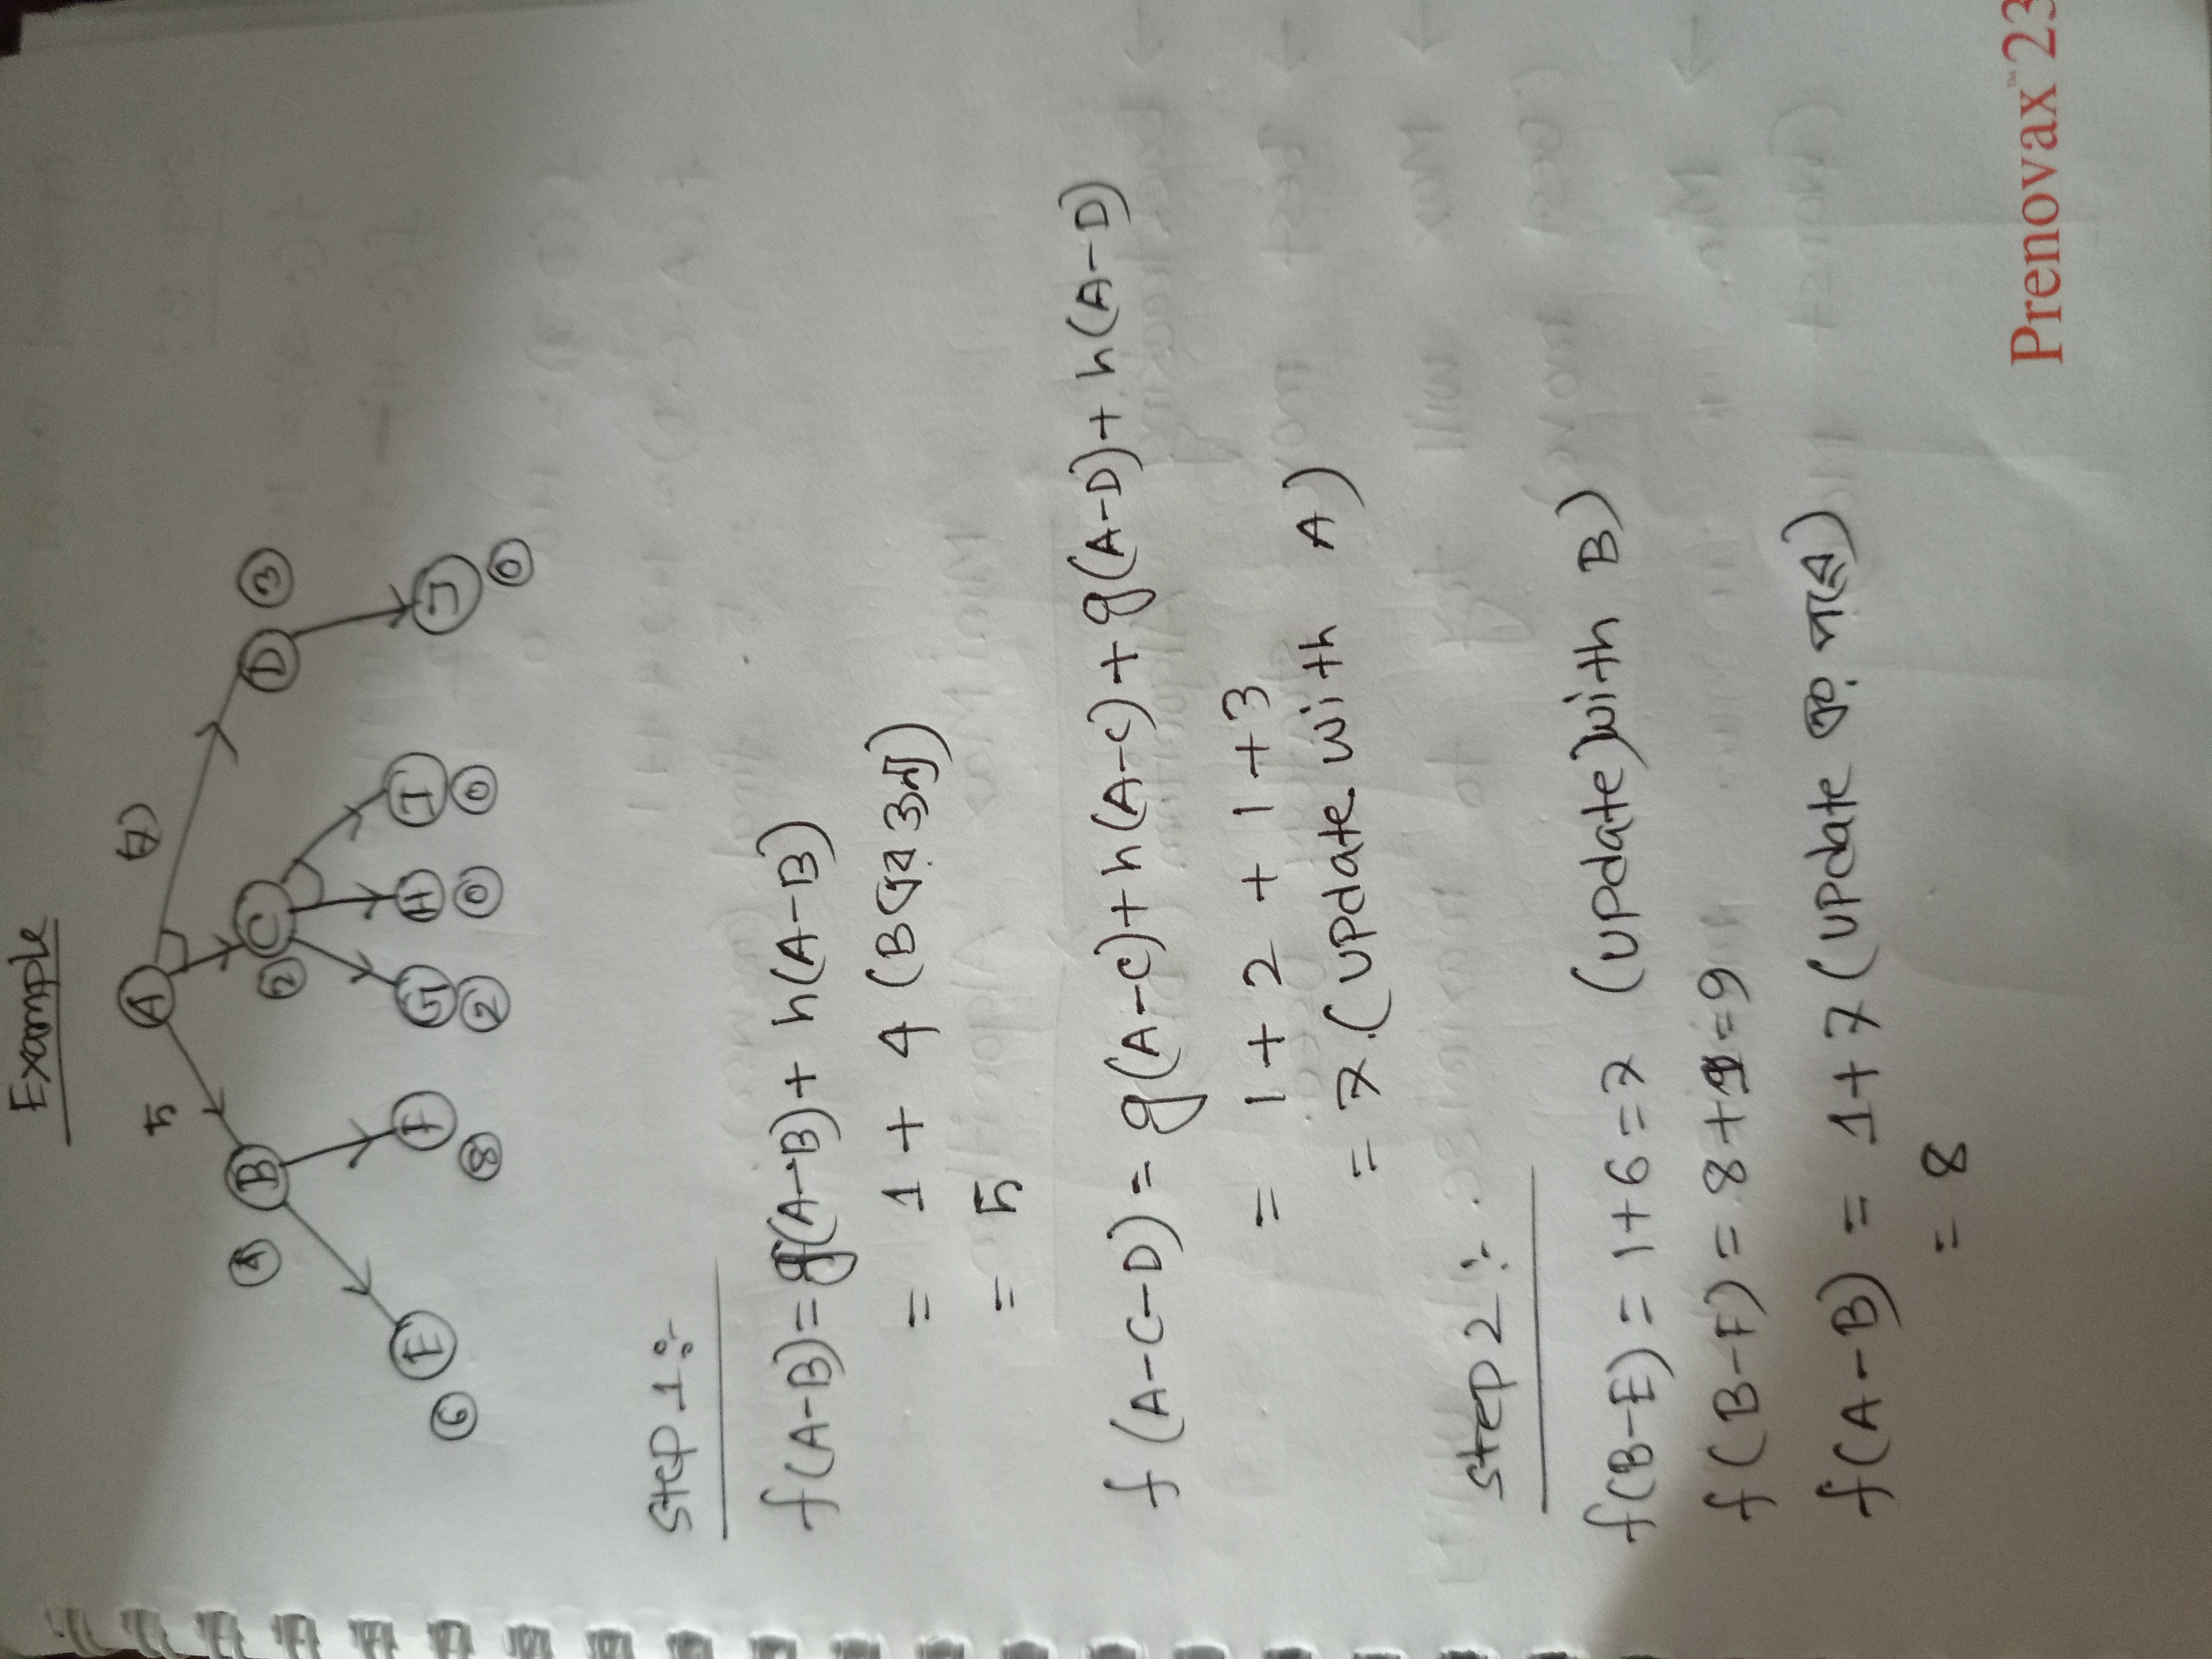 Example
A
5
(7)
4 B
2 C
D 3
E
F
G
H
I
J
6
8
2
0
0
0
Step 1:-
f(A-B)= g(A-B)+ h(A-B)
= 1 + 4 (B এর জন্য)
= 5
f (A-C-D) = g(A-C)+h(A-C)+g(A-D)+ h(A-D)
= 1 + 2 + 1 + 3
= 7 (update with A)
step 2 :-
f(B-E) = 1+6=7 (update) with B)
f(B-F) = 8+1=9
f(A-B) = 1+7 (update এর পরে)
= 8
Prenovax™ 23